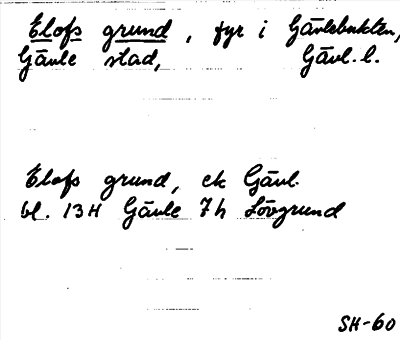 Elofs grund, fyr i Gävlebukten,
Gävle stad, Gävl. l.
Elofs grund, ek Gävl.
bl. 13H Gävle 7h Lövgrund
SH-60